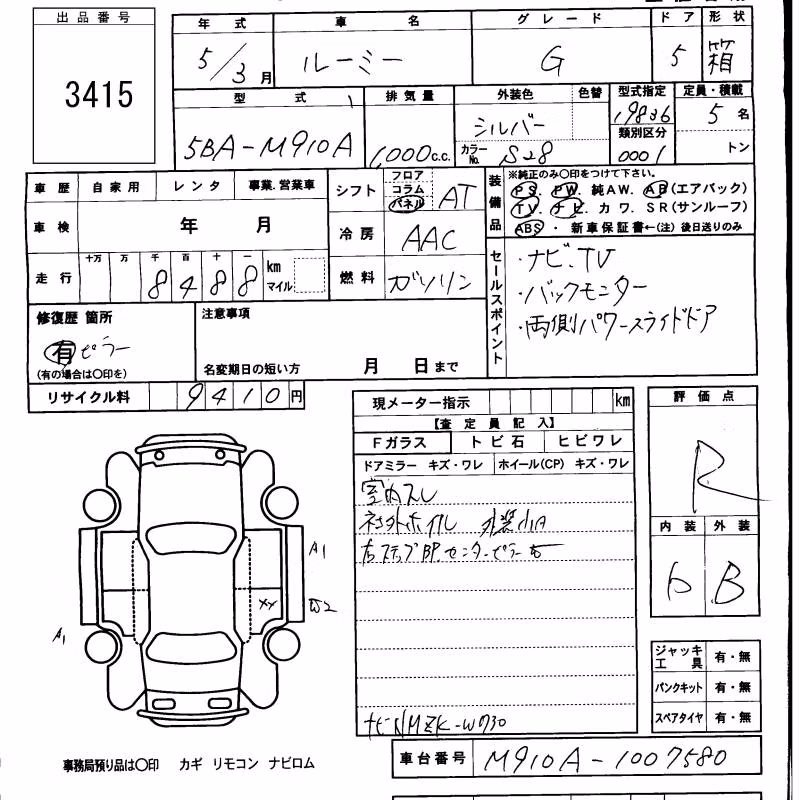 出品番号
3415
年式 車名 グレード ドア 形状
5/3月 ルーミー G 5 箱
型式 排気量 外装色 色替 型式指定 定員・積載
5BA-M910A 1,000c.c. シルバー 19836 5名
カラーNo. S28 類別区分 0001 トン
車歴 自家用 レンタ 事業.営業車
車検 年 月
走行 十万 万 千 百 十 一 km マイル
8488
シフト フロア コラム パネル AT
冷房 AAC
燃料 ガソリン
装備品
※純正のみ○印をつけて下さい。
PS. PW. 純AW. AB(エアバック)
TV. ナビ. カワ. SR(サンルーフ)
ABS・新車保証書←(注)後日送りのみ
セールスポイント
・ナビ、TV
・バックモニター
・両側パワースライドドア
修復歴 箇所
有 ピラー
(有の場合は○印を)
注意事項
名変期日の短い方 月 日まで
リサイクル料 9410円
現メーター指示 km
【査定員記入】
Fガラス トビ石 ヒビワレ
ドアミラー キズ・ワレ ホイール(CP) キズ・ワレ
室内スレ
社外ホイル 外装小A
右ステップBP.センターピラー
ナビNMZK-W730
評価点
R
内装 外装
b B
A1
XX W2
A1
ジャッキ工具 有・無
パンクキット 有・無
スペアタイヤ 有・無
事務局預り品は○印 カギ リモコン ナビロム
車台番号 M910A-1007580